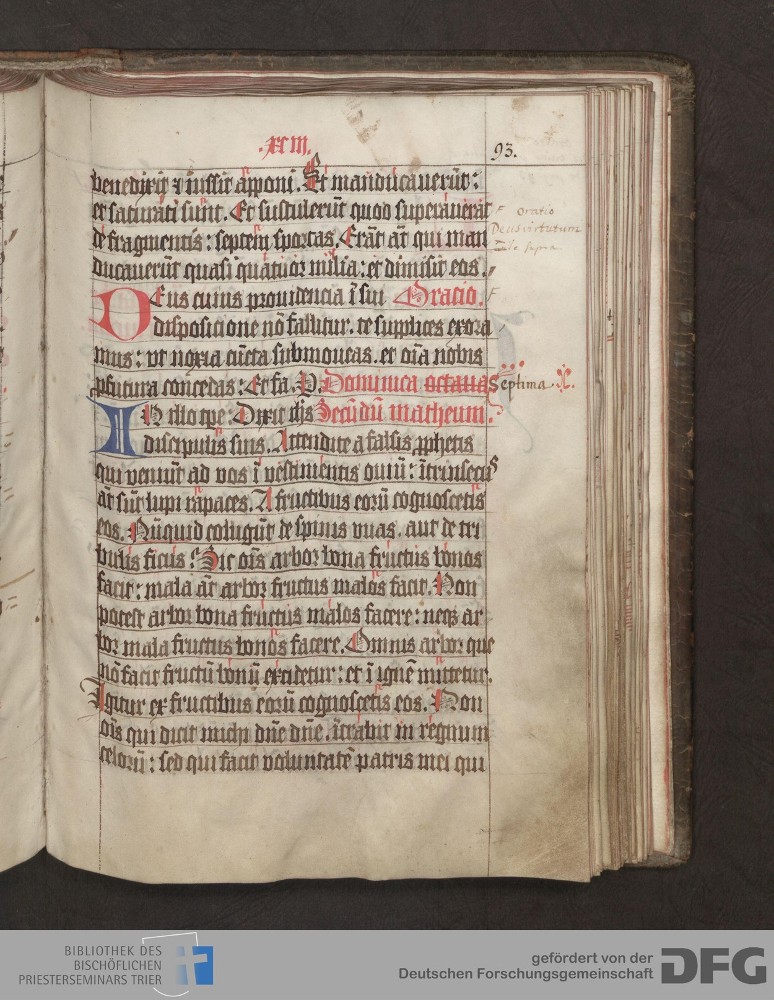 .xciii.
93.
benedixit ⁊ iussit apponi. Et manducauerūt:
et saturati sunt. Et sustulerūt quod superauerāt
de fragmentis: septem sportas. Erāt āt qui man
ducauerūt quasi quatuor milia: et dimisit eos.
F Oratio
Deus virtutum
supra
DEus cuius prouidencia ī sui Oratio. F
disposicione nō fallitur. te supplices exora
mus: vt noxia cūcta submoueas. et oīa nobis
ꝓfutura concedas: Et fa. P. Dominica octaua Septima
IN illo tpe: Dixit ihs Secūdū matheum.
discipulis suis. Attendite a falsis ꝓphetis
qui veniūt ad vos ī vestimentis ouiū: ītrinsecus
āt sūt lupi rapaces. A fructibus eorū cognoscetis
eos. Nūquid colligūt de spinis vuas. aut de tri
bulis ficus? Sic oīs arbor bona fructus bonos
facit: mala āt arbor fructus malos facit. Non
potest arbor bona fructus malos facere: neqꝫ ar
bor mala fructus bonos facere. Omnis arbor que
nō facit fructū bonū excidetur: et ī ignē mittetur.
Igitur ex fructibus eorū cognoscetis eos. Non
oīs qui dicit michi dn̄e dn̄e. ītrabit in regnum
celorū: sed qui facit voluntatē patris mei qui
BIBLIOTHEK DES
BISCHÖFLICHEN
PRIESTERSEMINARS TRIER
gefördert von der
Deutschen Forschungsgemeinschaft
DFG